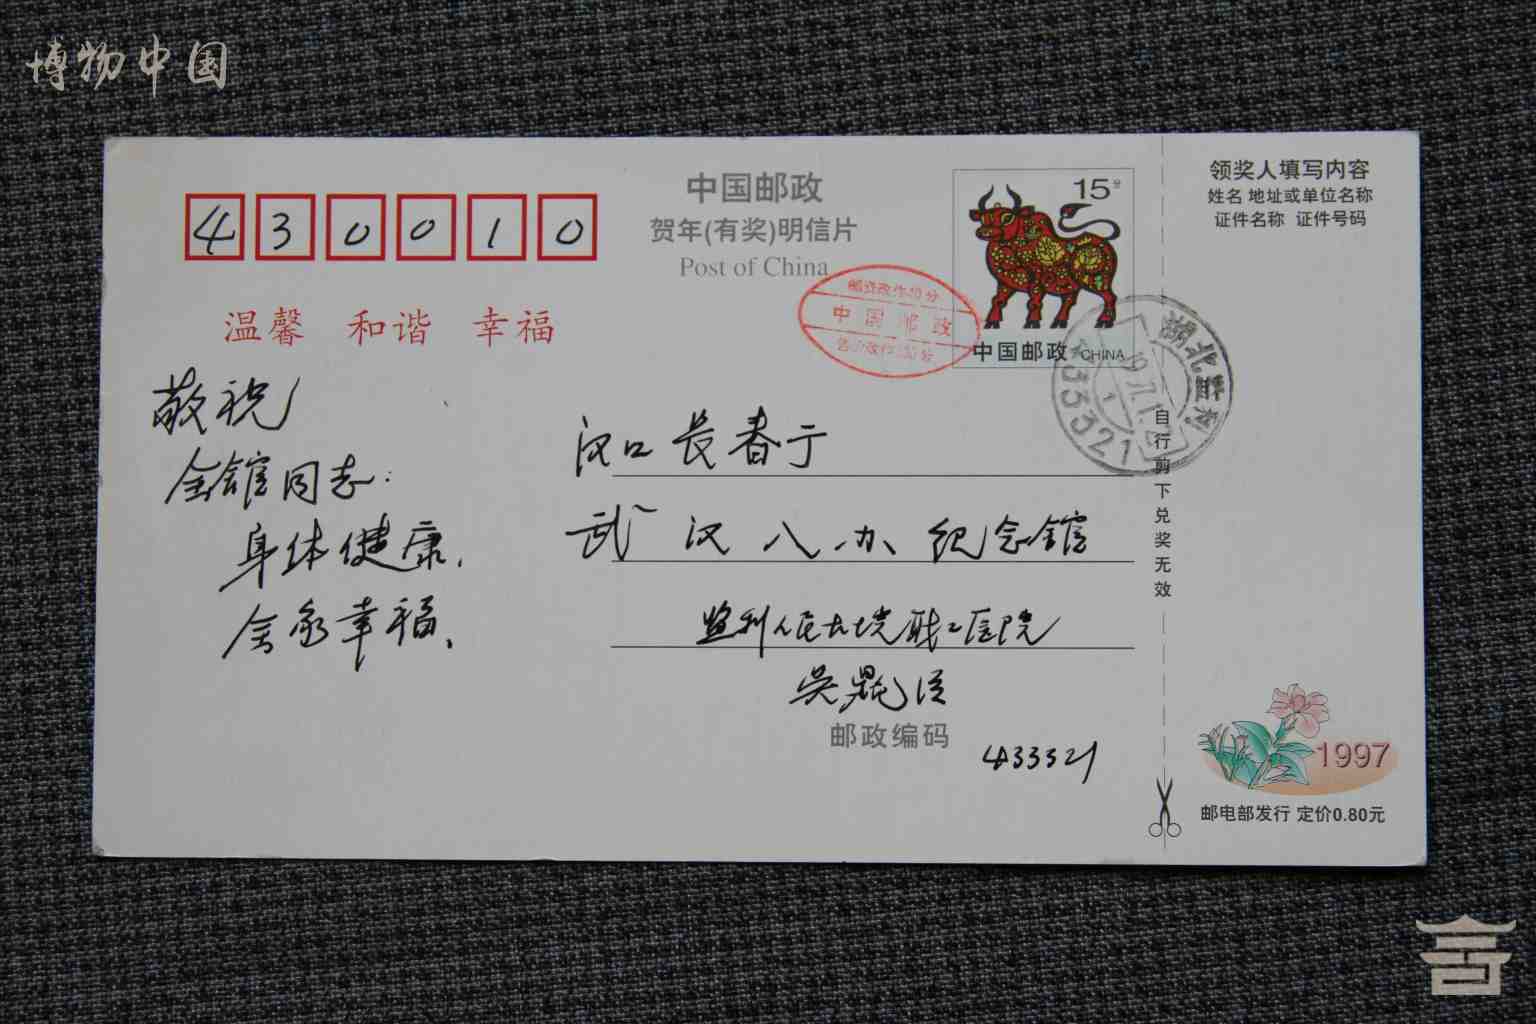 博物中国
430010
温馨 和谐 幸福
敬祝
全馆同志:
身体健康,
全家幸福、
中国邮政
贺年(有奖)明信片
Post of China
15分
中国邮政 CHINA
中国邮政
湖北监利
433321
汉口长春
武汉八办纪念馆
监利人民大垸职工医院
吴
邮政编码
433321
领奖人填写内容
姓名 地址或单位名称
证件名称 证件号码
自行剪下兑奖无效
1997
邮电部发行 定价0.80元